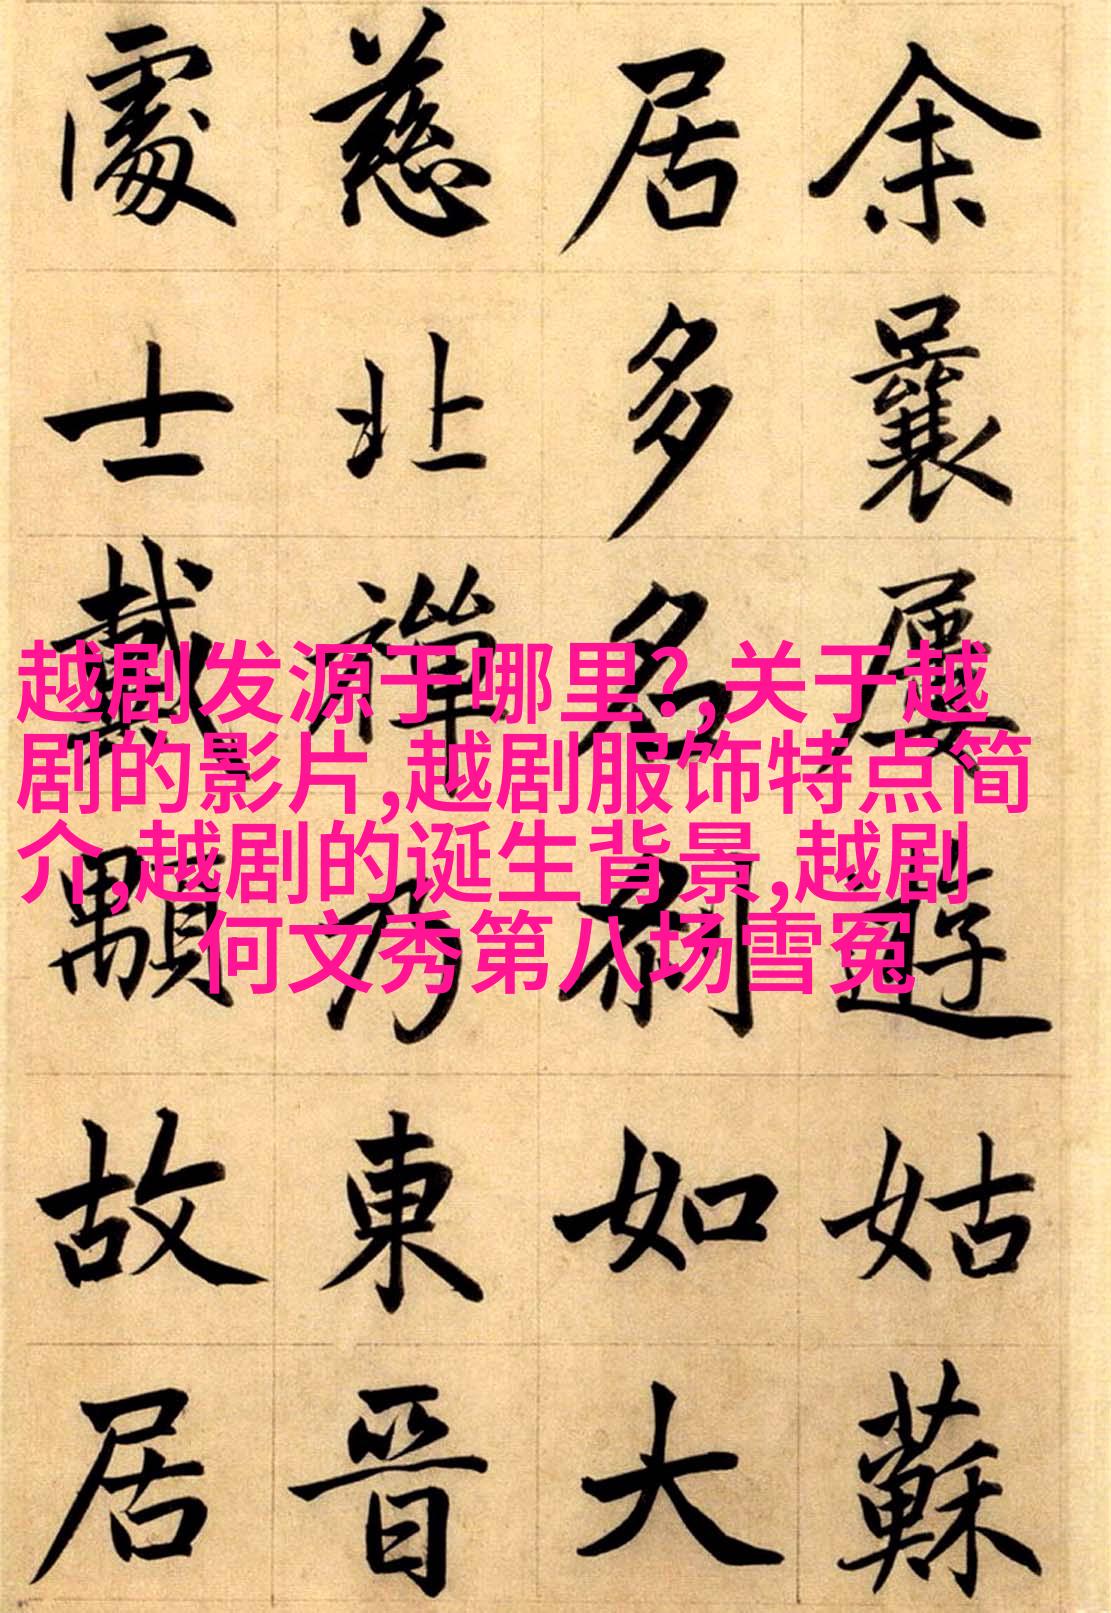 余曩屢遊姑蘇
居多名刹如大
慈北禪乃東晉
處士戴顒故居
越剧发源于哪里?,关于越
剧的影片,越剧服饰特点简
介,越剧的诞生背景,越剧
何文秀第八场雪冤